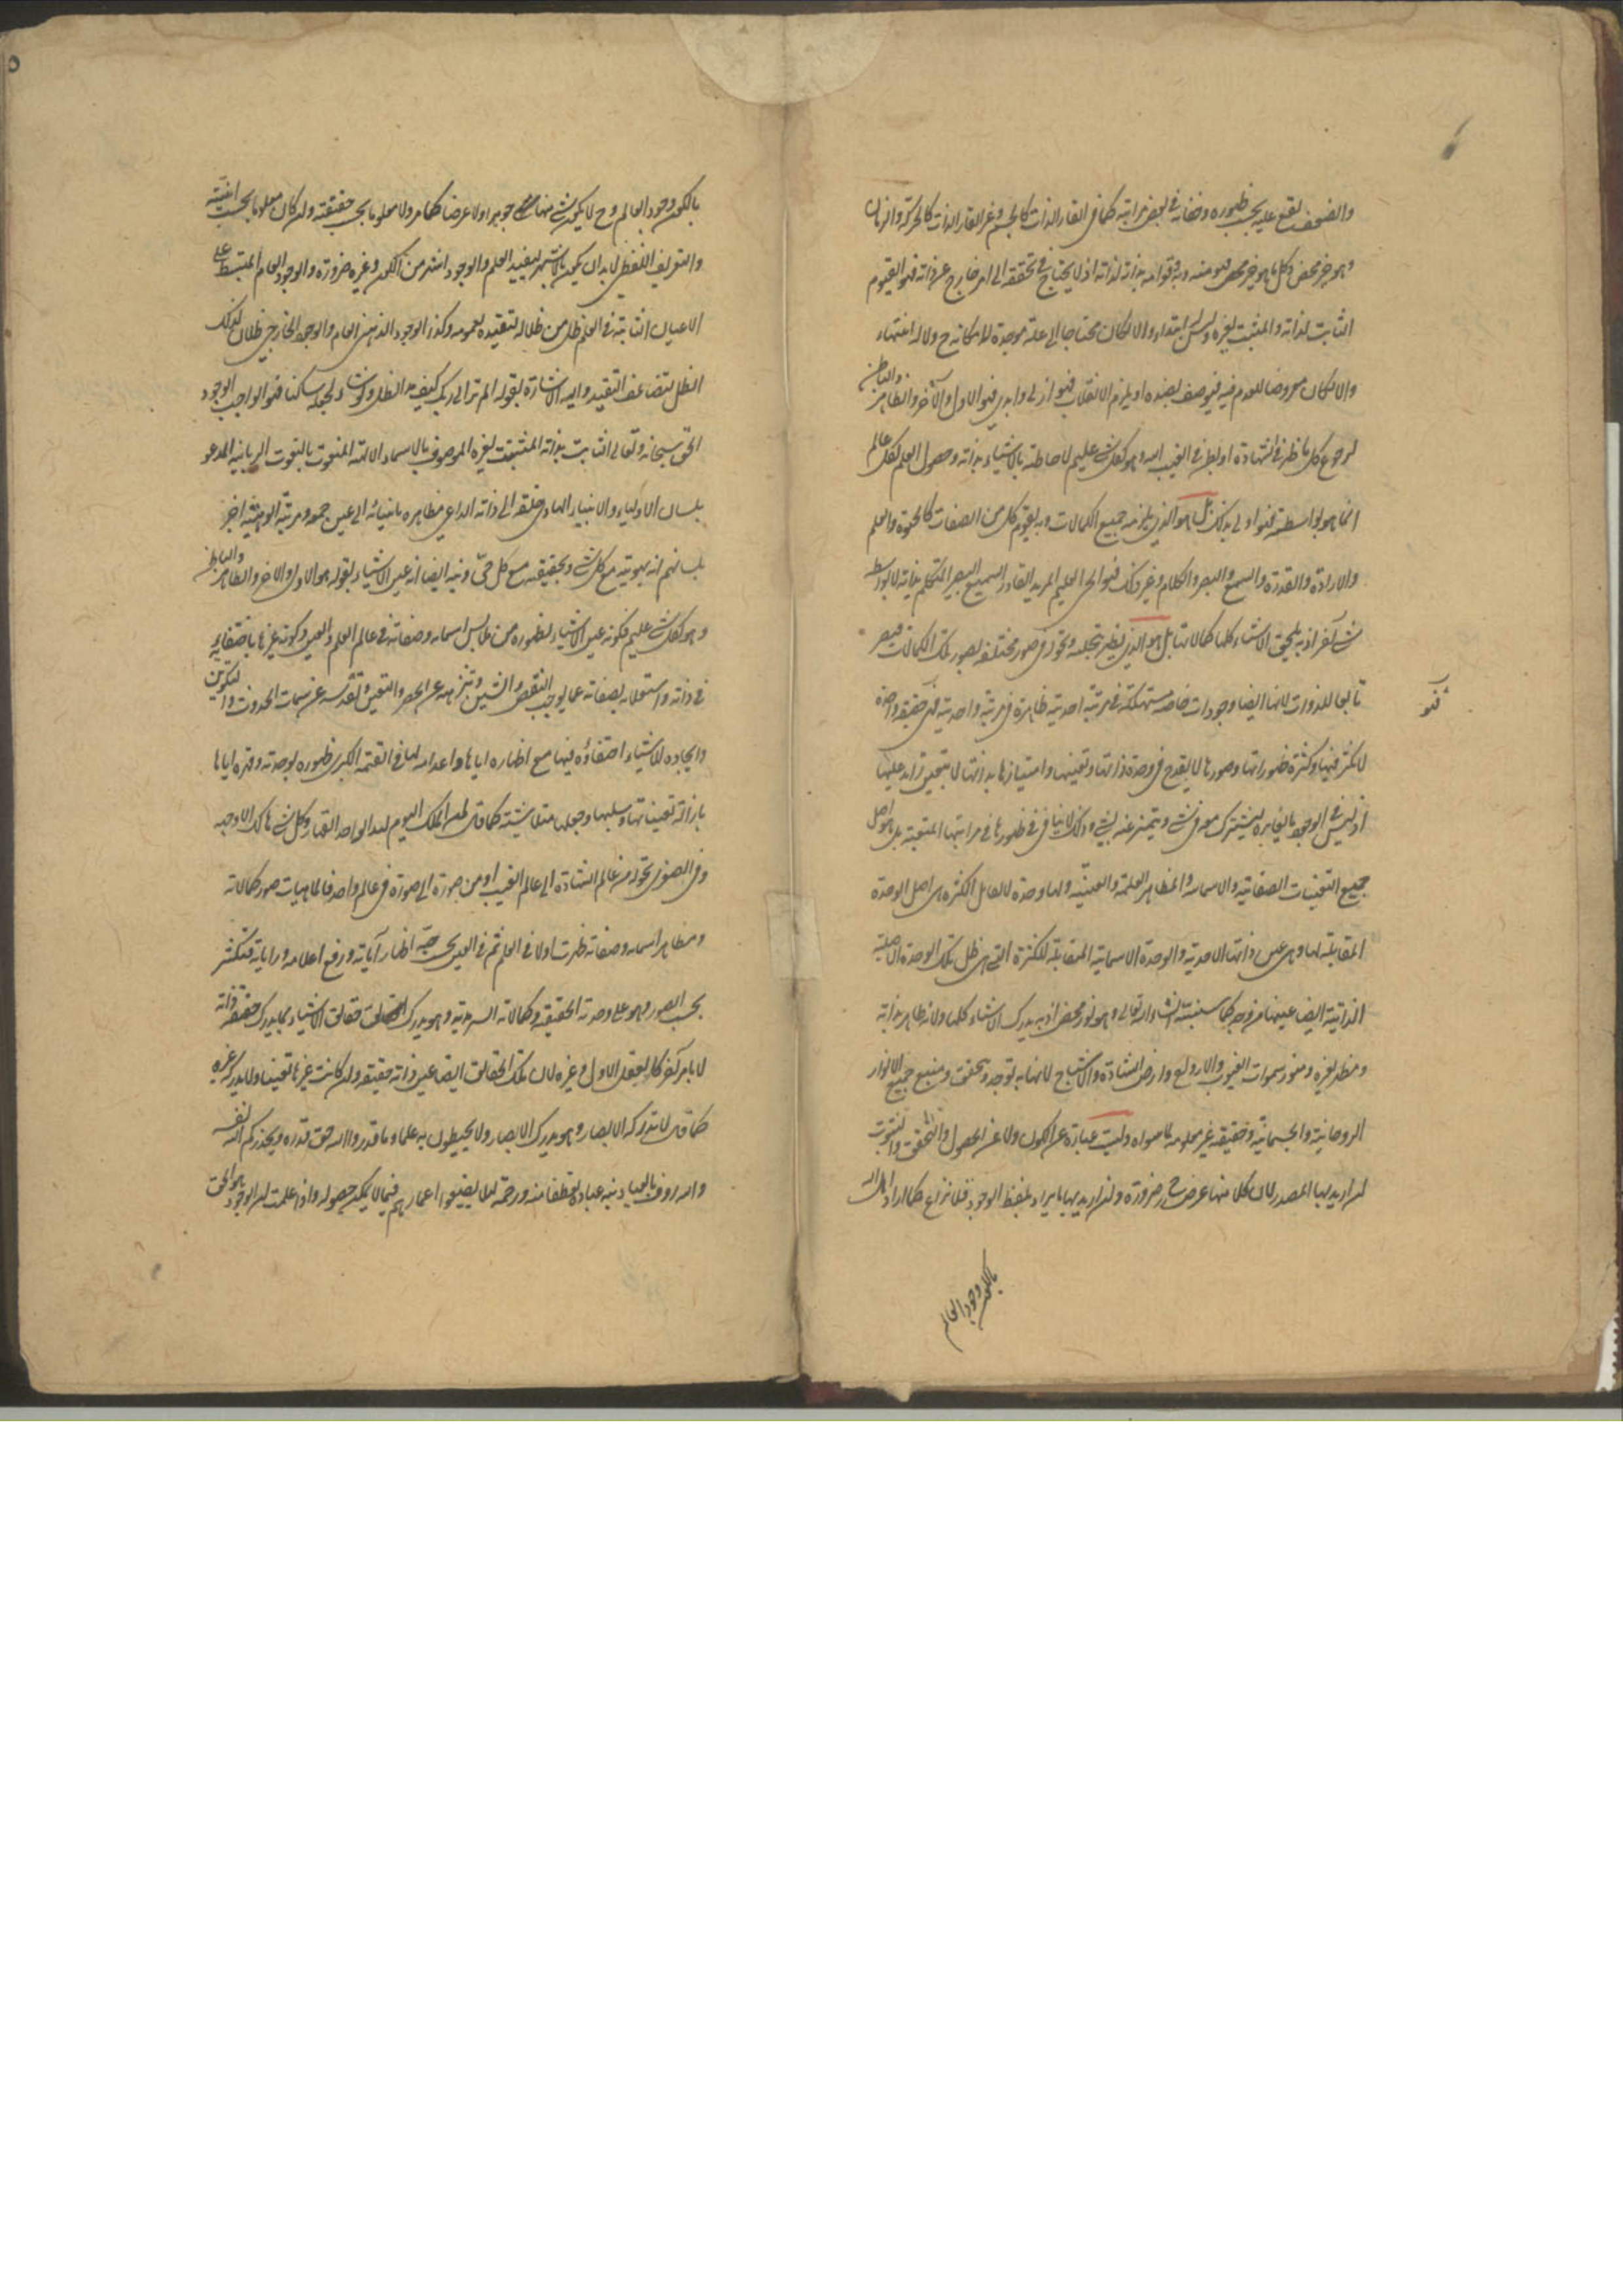 والضعف يقع عليه بحسب ظهوره وخفائه في بعض مراتبه كما في القار الذات كالجسم وغير القار الذات كالحركة والزمان
وهو خير محض وكل ما هو خير محض فهو منه وبه وقوامه بذاته لذاته اذ لا يحتاج في تحققه الى امر خارج عن ذاته فهو القيوم
الثابت لذاته والمثبت لغيره وليس له ابتداء والا لكان محتاجا الى علة موجدة لامكانه ح ولا له انتهاء
والا لكان معروضا للعدم فيه فيوصف بضده او يلزم الانقلاب فهو ازلي وابدي فهو الاول والآخر والظاهر والباطن
لرجوع كل ما ظهر في الشهادة او بطن في الغيب اليه وهو بكل شئ عليم لاحاطته بالاشياء بذاته وحصول العلم لكل عالم
انما هو بواسطته فهو اولى بذلك بل هو الذي يلزمه جميع الكمالات وبه يقوم كل من الصفات كالحيوة والعلم
والارادة والقدرة والسمع والبصر والكلام وغير ذلك فهو الحي العليم المريد القادر السميع البصير المتكلم بذاته لا بواسطة
شئ آخر اذ به يلحق الاشياء كلها كمالاتها بل هو الذي يظهر بتجليه وتحوله في صور مختلفة بصور تلك الكمالات فيصير
تابعا للذوات لانها ايضا وجودات خاصة مستهلكة في مرتبة احديته ظاهرة في مرتبة واحديته فهي حقيقة واحدة
فهو
لا تكثر فيها وكثرة ظهوراتها وصورها لا يقدح في وحدة ذاتها وتعينها وامتيازها بذاتها لا بتعين زايد عليها
اذ ليس في الوجود ما يغايره ليشترك معه في شئ ويتميز عنه بشئ وذلك لا ينافي في ظهورها في مراتبها المتعينة بل هو اصل
جميع التعينات الصفاتية والاسمائية والمظاهر العلمية والعينية ولها وحدة لا تقابل الكثرة هي اصل الوحدة
المقابلة لها وهي عين ذاتها الاحدية والوحدة الاسمائية المتقابلة للكثرة التي هي ظل تلك الوحدة الاصلية
الذاتية ايضا عينها من وجه كما سنبينه ان شاء الله تعالى وهو نور محض اذ به يدرك الاشياء كلها ولانه ظاهر بذاته
ومظهر لغيره ومنور سموات الغيوب والارواح وارض الشهادة والاشباح لانها به توجد وتحقق ومنبع جميع الانوار
الروحانية والجسمانية وحقيقة غير معلومة لما سواه وليست عبارة عن الكون ولا عن الحصول والتحقق والثبوت
ان اريد بها المصدر لان كلا منها عرض ح ضرورة وان اريد بها ما يراد بلفظ الوجود فلا نزاع كما اراد اهل الله
بالكون وجود العالم
بالكون وجود العالم وح لا يكون شئ منها جوهرا ولا عرضا كما مر ولا معلوما بحسب حقيقته وان كان معلوما بحسب انيته
والتعريف اللفظي لا بد ان يكون بالاشهر ليفيد العلم والوجود اشهر من الكون وغيره ضرورة والوجود العام المنبسط على
الاعيان الثابتة في العلم ظل من ظلاله لتقيده بعمومه وكذا الوجود الذهني العام والوجود الخارجي ظلان لذلك
الظل لتضاعف التقييد واليه الاشارة بقوله الم تر الى ربك كيف مد الظل ولو شاء لجعله ساكنا فهو الواجب الوجود
الحق سبحانه وتعالى الثابت بذاته المثبت لغيره الموصوف بالاسماء الالهية المنعوت بالنعوت الربانية المدعو
بلسان الاولياء والانبياء الهادي خلقه الى ذاته الداعي مظاهره بانبيائه الى عين جمعه ومرتبة الوهيته اخبر
بلسانهم انه بهويته مع كل شئ وبحقيقته مع كل حي ونبه ايضا انه عين الاشياء بقوله هو الاول والاخر والظاهر والباطن
وهو بكل شئ عليم فكونه عين الاشياء بظهوره في ملابس اسمائه وصفاته في عالم العلم والعين وكونه غيرها باختفائه
في ذاته واستعلائه بصفاته عما يوجب النقص والشين وتنزهه عن الحصر والتعين وتقدسه عن سمات الحدوث والتكوين
وايجاده للاشياء اختفاؤه فيها مع اظهاره اياها واعدامه لها في القيمة الكبرى ظهوره بوحدته وقهره اياها
بازالة تعيناتها وسلبها وجعلها متلاشية كما قال لمن الملك اليوم لله الواحد القهار وكل شئ هالك الا وجهه
وفي الصغرى تحوله من عالم الشهادة الى عالم الغيب او من صورة الى صورة في عالم واحد فالماهيات صور كمالاته
ومظاهر اسمائه وصفاته ظهرت اولا في العلم ثم في العين بحسب حبه اظهار آياته ورفع اعلامه وراياته فتكثر
بحسب الصور وهو على وحدته الحقيقية وكمالاته السرمدية وهو يدرك حقائق الاشياء بما يدرك حقيقة ذاته
لا بامر آخر كالعقل الاول وغيره لان تلك الحقائق ايضا عين ذاته حقيقة وان كانت غيرها تعينا ولا يدركه غيره
كما قال لا تدركه الابصار وهو يدرك الابصار ولا يحيطون به علما وما قدروا الله حق قدره ويحذركم الله نفسه
والله رؤف بالعباد نبه عباده تعطفا منه ورحمة لئلا يضيعوا اعمارهم فيما لا يمكن حصوله واذا علمت ان الوجود هو الحق